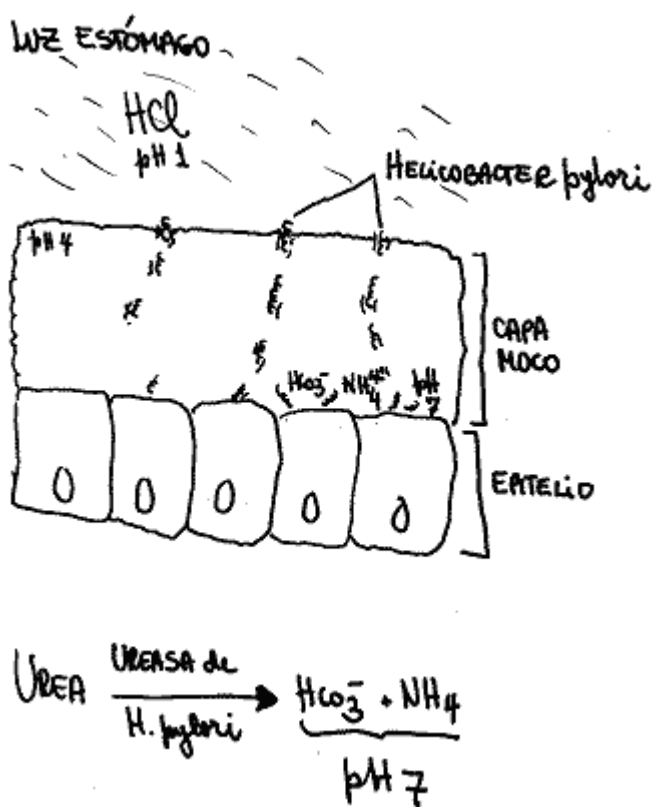 LUZ ESTÓMAGO
HCl
pH 1
HELICOBACTER pylori
pH 4
CAPA
MOCO
HCO3⁻ NH4⁺ pH 7
EPITELIO
UREA UREASA de H. pylori HCO3⁻ + NH4
pH 7